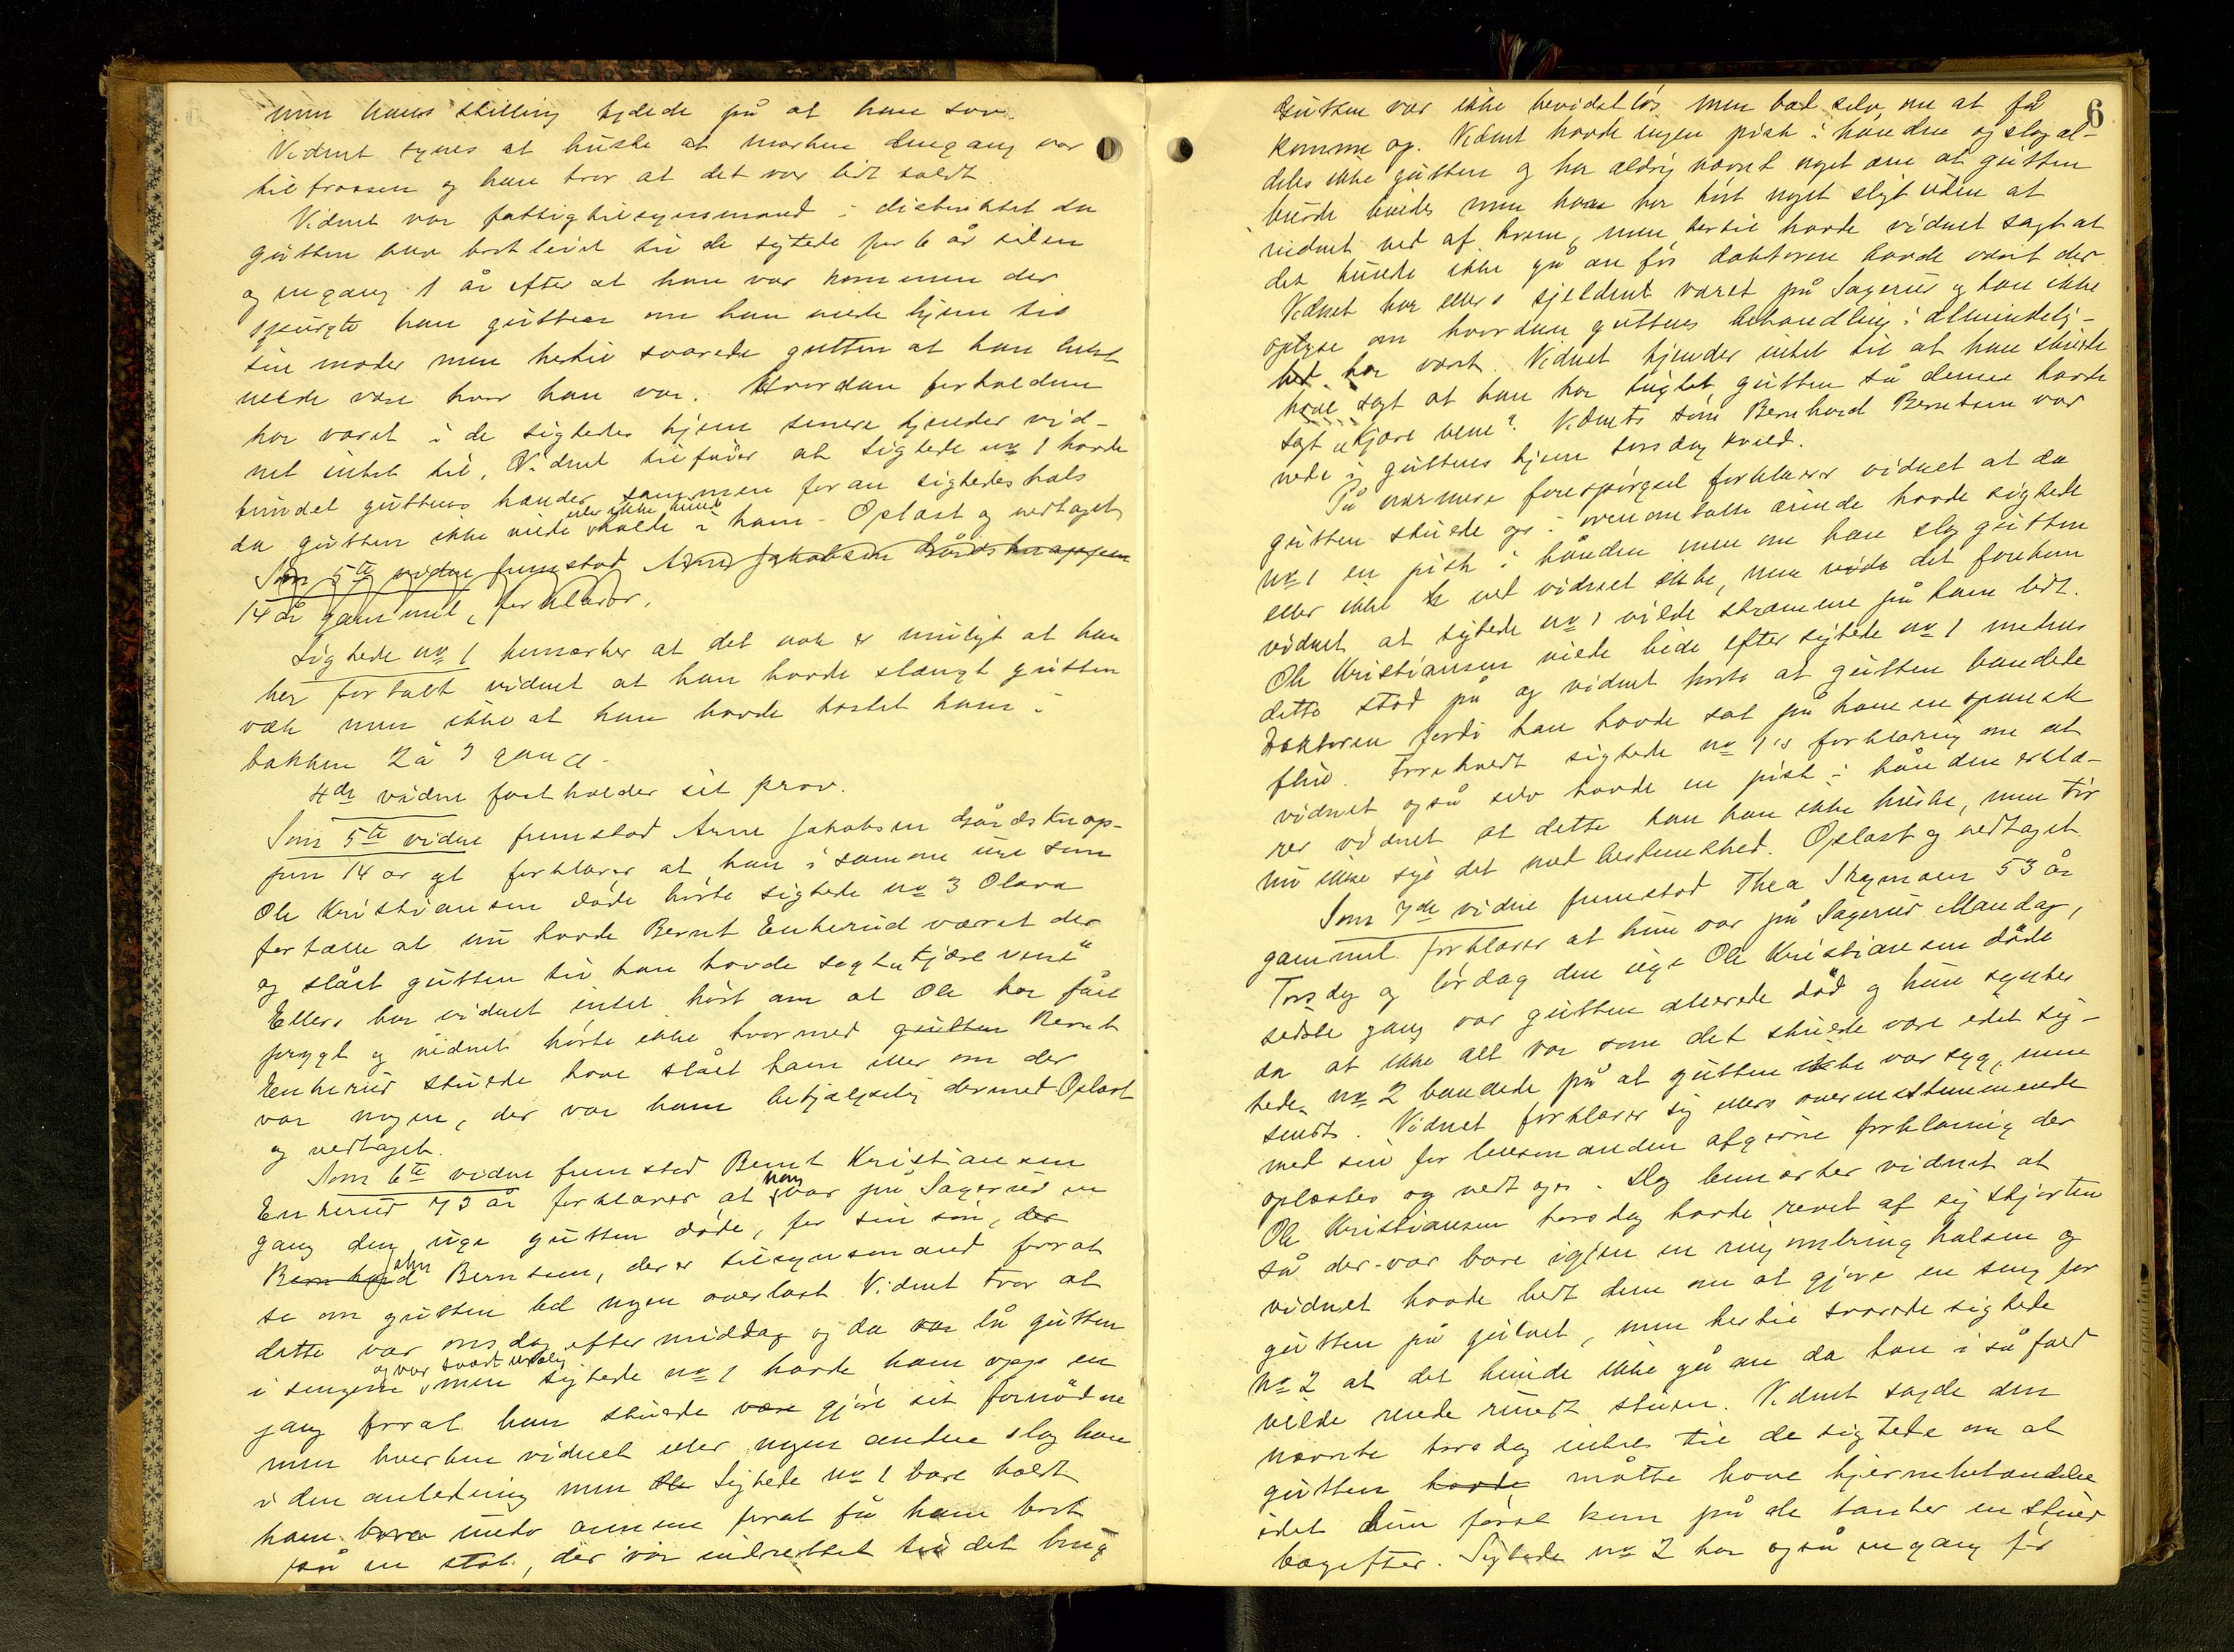 men hans stilling tydede på at han sov.
Vidnet synes at huske at marken dengang var
tilfrossen og han tror at det var lidt koldt.
Vidnet var fattigtilsynsmand i distriktet da
gutten blev bortleiet til de sigtede for 6 år siden
og engang 1 år efter at han var kommen der
spurgte han gutten om han vilde hjem til
sin moder men hertil svarede gutten at han helst
vilde være hvor han var. Hvordan forholdene
har været i de sigtedes hjem senere kjender vid-
net intet til. Vidnet tilføier at sigtede no 1 havde
bundet guttens hænder sammen foran sigtedes hals
da gutten ikke vilde eller ikke kunde holde i ham - Oplæst og vedtaget
Som 5te vidne fremstod Arne Jakobsen Gårdsknappen
14 år gammel, forklarer,
Sigtede no 1 bemærker at det nok er muligt at han
her fortalt vidnet at han havde slængt gutten
væk men ikke at han havde kastet ham i
bakken 2 à 3 gange.
4de vidne fastholder sit prov.
Som 5te vidne fremstod Arne Jakobsen Gårdsknap-
pen 14 år gl forklarer at han i samme uge som
Ole Kristiansen døde hørte sigtede no 3 Olava
fortælle at nu havde Bernt Enkerud været der
og slået gutten til han havde sagt "kjære vene"
Ellers har vidnet intet hørt om at Ole har fået
prygl og vidnet hørte ikke hvormed gutten Bernt
Enkerud skulde have slået ham eller om der
var nogen, der var ham behjælpelig dermed Oplæst
og vedtaget.
Som 6te vidne fremstod Bernt Kristiansen
Enkerud 73 år forklarer at han var på Sagerud en
gang den uge gutten døde, for sin søn, der
Bernhard Berntsen, der er tilsynsmand forat
se om gutten led nogen overlast. Vidnet tror at
dette var onsdag eftermiddag og da var lå gutten
i sengen og var svært urolig men sigtede no 1 havde ham opp en
gang forat han skulde være gjøre sit fornødne
men hverken vidnet eller nogen anden slog ham
i den anledning men Ole Sigtede no 1 bare holdt
ham bare under armene forat få ham bort
på en stol, der var indrettet til det brug

6
Gutten var ikke bevidstløs men bad selv om at få
komme op. Vidnet havde ingen pisk i hånden og slog al-
deles ikke gutten og har aldrig nævnt noget om at gutten
burde bindes men han har hørt noget sligt uden at
vidnet ved af hvem, men hertil havde vidnet sagt at
det kunde ikke gå an før doktoren havde været der.
Vidnet har ellers sjeldent været på Sagerud og kan ikke
oplyse om hvordan guttens behandling i almindelig-
hed har været. Vidnet kjender intet til at han skulde
have sagt at han har tugtet gutten så denne havde
sagt "kjære vene". Vidnets søn Bernhard Berntsen var
nede i guttens hjem torsdag kveld.
På nærmere forespørgsel forklarer vidnet at da
gutten skulde op i ovenomtalte ærinde havde sigtede
no 1 en pisk i hånden men om han slog gutten
eller ikke ved vidnet ikke, men det forekom
vidnet at sigtede no 1 vilde skræmme på ham lidt.
Ole Kristiansen vilde bide efter sigtede no 1 medens
dette stod på og vidnet hørte at gutten bandede
doktoren fordi han havde sat på ham en spansk
flue. Foreholdt sigtede no 1's forklaring om at
vidnet også selv havde en pisk i hånden erklæ-
rer vidnet at dette kan han ikke huske, men tør
nu ikke sige det med bestemthed. Oplæst og vedtaget.
Som 7de vidne fremstod Thea Skymoen 53 år
gammel. forklarer at hun var på Sagerud Mandag,
Torsdag og lørdag den uge Ole Kristiansen døde
sidste gang var gutten allerede død og hun syntes
da at ikke alt var som det skulde være idet sig-
tede no 2 bandede på at gutten ikke var syg, men
. Vidnet forklarer sig ellers overensstemmende
med sin for lensmanden afgivne forklaring der
oplæstes og vedtoges. Dog bemærker vidnet at
Ole Kristiansen torsdag havde revet af sig skjorten
så der var bare igjen en ring omkring halsen og
vidnet havde bedt dem om at gjøre en seng for
gutten på gulvet, men hertil svarede sigtede
no 2 at det kunde ikke gå an da han i så fald
vilde rende rundt stuen. Vidnet sagde den
nævnte torsdag til de sigtede om at
gutten havde måtte have hjernebetændelse
idet hun først kom på de tanker en stund
bagefter. Sigtede no 2 har også engang før